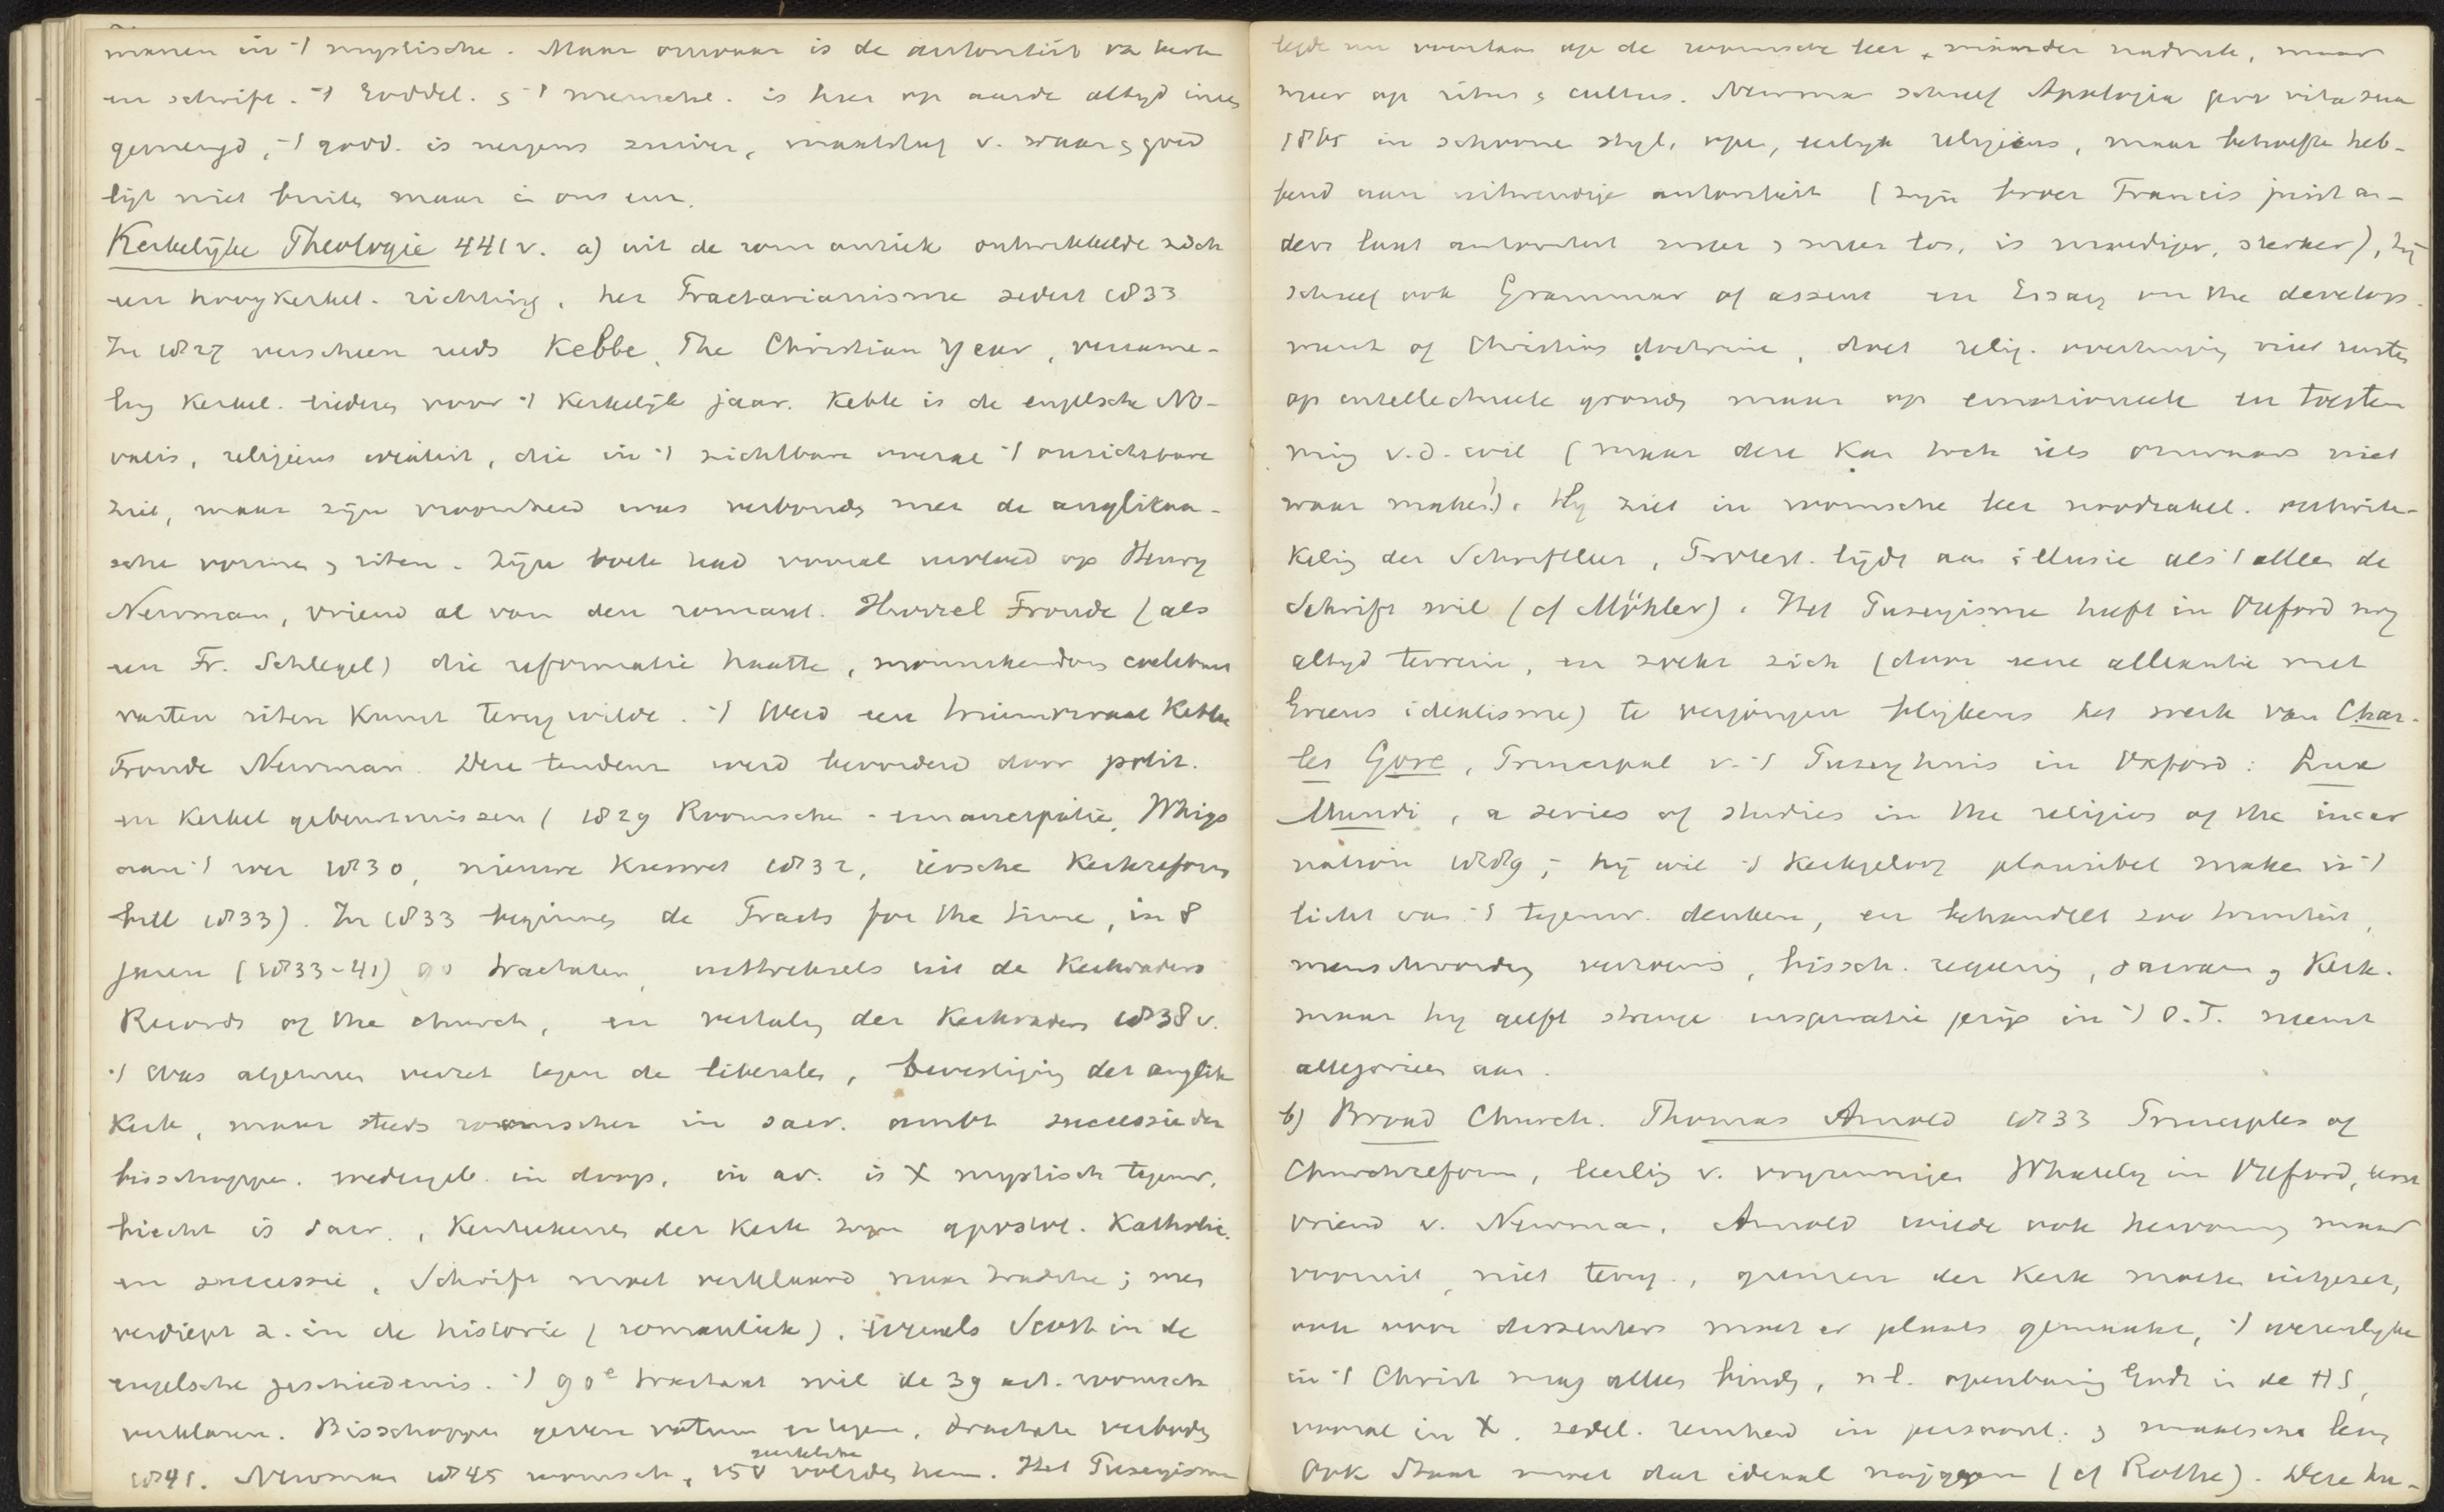 manen in 't mystische. Maar onwaar is de autoriteit va kerk
en schrift. 't Goddel. & 't mensche. is hier op aarde altyd ineen
gemengd, 't godd. is nergens zuiver, maatstaf v. waar & goed
ligt niet buiten maar in ons eur.
Kerkelyke Theologie 441 v. a) uit de romantiek ontwikkelde zich
een hoogkerkel. richting, het Tractarianisme sedert 1833
In 1827 verscheen reeds Kebbe, The Christian Year, verzame-
ling Kerkel. liederen voor 't Kerkelijk jaar. Keble is de engelsche No-
valis, religieus, die in 't zichtbare overal 't onzichtbare
ziet, maar zijn vroomheid was verbonden met de anglikaa-
sche vormen & riten. Zijn boek had vooral invloed op Henry
Newman, vriend al van den romant. Hurrel Froude (als
een Fr. Schlegel) die reformatie haatte, monnikendom coelibaat
vasten riten Kunst terug wilde. 't Werd een triumviraat Keble
Froude Newman. Deze tendenz werd bevorderd door polit.
en Kerkel gebeurtenissen (1829 Roomsche - emancipatie, Whigs
aan 't roer 1830, nieuwe Kieswet 1832, iersche Kerkreform
bill 1833). In 1833 beginnen de Tracts for the time, in 8
jaren (1833-41) 90 tractaten, uittreksels uit de Kerkvaders
Records of the church, en vertaling der Kerkvaders 1838 v.
't Was algemeen verzet tegen de liberalen, bevestiging der anglik
Kerk, maar steeds roomscher in sacr. ambt successie der
bisschoppen. wedergeb. in doop, in av. is X mystisch tegenw.
biecht is sacr., Kenteekenen der Kerk zijn apostol. Katholic.
en successie, Schrift moet verklaard naar traditie; men
verdiept z. in de historie (romantiek), evenals Scott in de
engelsche geschiedenis. 't 90e tractaat wil de 39 art. roomsch
verklaren. Bisschoppen geven votum er tegen, tractaten verboden
1841. Newman 1845 roomsch, 150 geestelijke volgden hem. Het Puseyisme
legde nu voortaan op de roomsche leer minder nadruk, maar
meer op ritus & cultus. Newman schreef Apologia pro vita sua
1865 in schoone stijl, open, eerlyk religieus, maar behoefte heb-
bend aan uitwendige autoriteit (zijn broer Francis juist an-
ders laat autoriteit meer & meer los, is moediger, sterker), hij
schreef ook Grammar of assent en Essay on the develop-
ment of Christian doctrine, doet relig. overtuiging niet rusten
op intellectueele gronden maar op emotioneele en toestem-
ming v.d. wil (maar deze Kan toch iets onwaars niet
waar maken!). Hy ziet in roomsche leer noodzakel. ontwik-
keling der Schriftleer, Protest. lijdt aan illusie als 't alleen de
Schrift wil (cf Möhler). Het Puseyisme heeft in Oxford nog
altyd terrein, en zoekt zich (door eene alliantie met
Greens idealisme) te verjongen blijkens het werk van Char-
les Gore, Principal v. 't Puseyhuis in Oxford: Lux
Mundi, a series of studies in the religion of the incar
nation 1889; hij wil 't Kerkgeloof plausibel maken in 't
licht van 't tegenw. denken, en behandelt zoo triniteit,
menschwording verzoening, bissch. regeering, sacram & Kerk.
maar hy geeft strenge inspiratie prijs in 't O.T. neemt
allegorieen aan.
b) Broad Church. Thomas Arnold 1833 Principles of
Churchreform, leerling v. vryzinnige Whately in Oxford, eerst
vriend v. Newman. Arnold wilde ook hervorming maar
vooruit, niet terug., grenzen der Kerk moeten uitgezet,
ook voor dissenters moet er plaats gemaakt, 't wezenlyke
in 't Christ mag alleen binden, nl. openbaring Gods in de HS,
vooral in X, zedel. reinheid in persoonl. & maatsch. leven
Ook Staat moet dat ideaal najagen (cf Rothe). Deze hu-